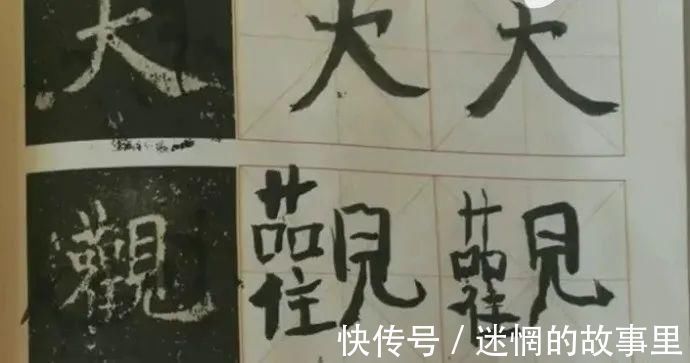 大 大 大
觀 觀 觀
快传号 / 迷惘的故事里